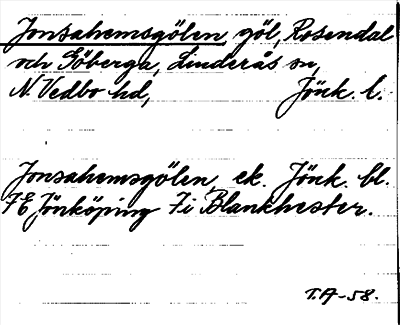 Jonsahemsgölen göl, Rosendal
och Göberga, Linderås sn,
N. Vedbo hd, Jönk. l.
Jonsahemsgölen, ek. Jönk. bl.
7E Jönköping 7i Blankhester.
T.A-58.